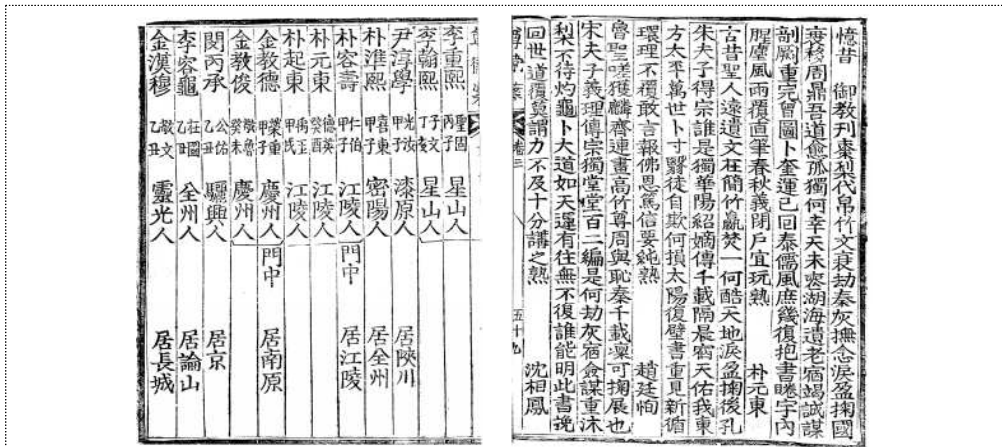 憶昔 御教刊棗梨代帛竹文衰劫秦灰撫念淚盈掬國
喪移周鼎吾道愈孤獨何幸天未喪湖海遺老宿竭誠謀
剞劂重完曾圖卜奎運已回泰儒風庶幾復抱書睠宇內
腥塵風雨覆直筆春秋義閉戶宜玩熟 朴元東
古昔聖人遠遺文在簡竹嬴焚一何酷天地淚盈掬後孔
朱夫子得宗誰是獨華陽紹嫡傳千載隔晨宿天佑我東
方太平萬世卜寸翳徒自欺何損太陽復壁書重見新循
環理不覆敢言報佛恩篤信要純熟 趙廷恂
魯聖嗟獲麟齊連畫高竹尊周與恥秦千載凜可掬展也
宋夫子義理傳宗獨堂堂百二編是何劫灰宿僉謀重沐
梨不待灼龜卜大道如天還有往無不復誰能明此書挽
回世道覆莫謂力不及十分講之熟 沈相鳳
卷二 五十九
李重熙 聖固 丙子 星山人
李翰熙 子文 丁亥 星山人
尹淳學 光汝 甲子 漆原人 居陜川
朴淮熙 喜東 甲子 密陽人 居全州
朴容壽 仁伯 甲子 江陵人 門中 居江陵
朴元東 德英 癸酉 江陵人
朴起東 禹玉 甲戌 江陵人
金教德 業重 甲子 慶州人 門中 居南原
金教俊 敬魯 癸未 慶州人
閔丙承 公佑 乙丑 驪興人 居京
李容龜 莊圖 乙丑 全州人 居論山
金漢穆 敬文 乙丑 靈光人 居長城